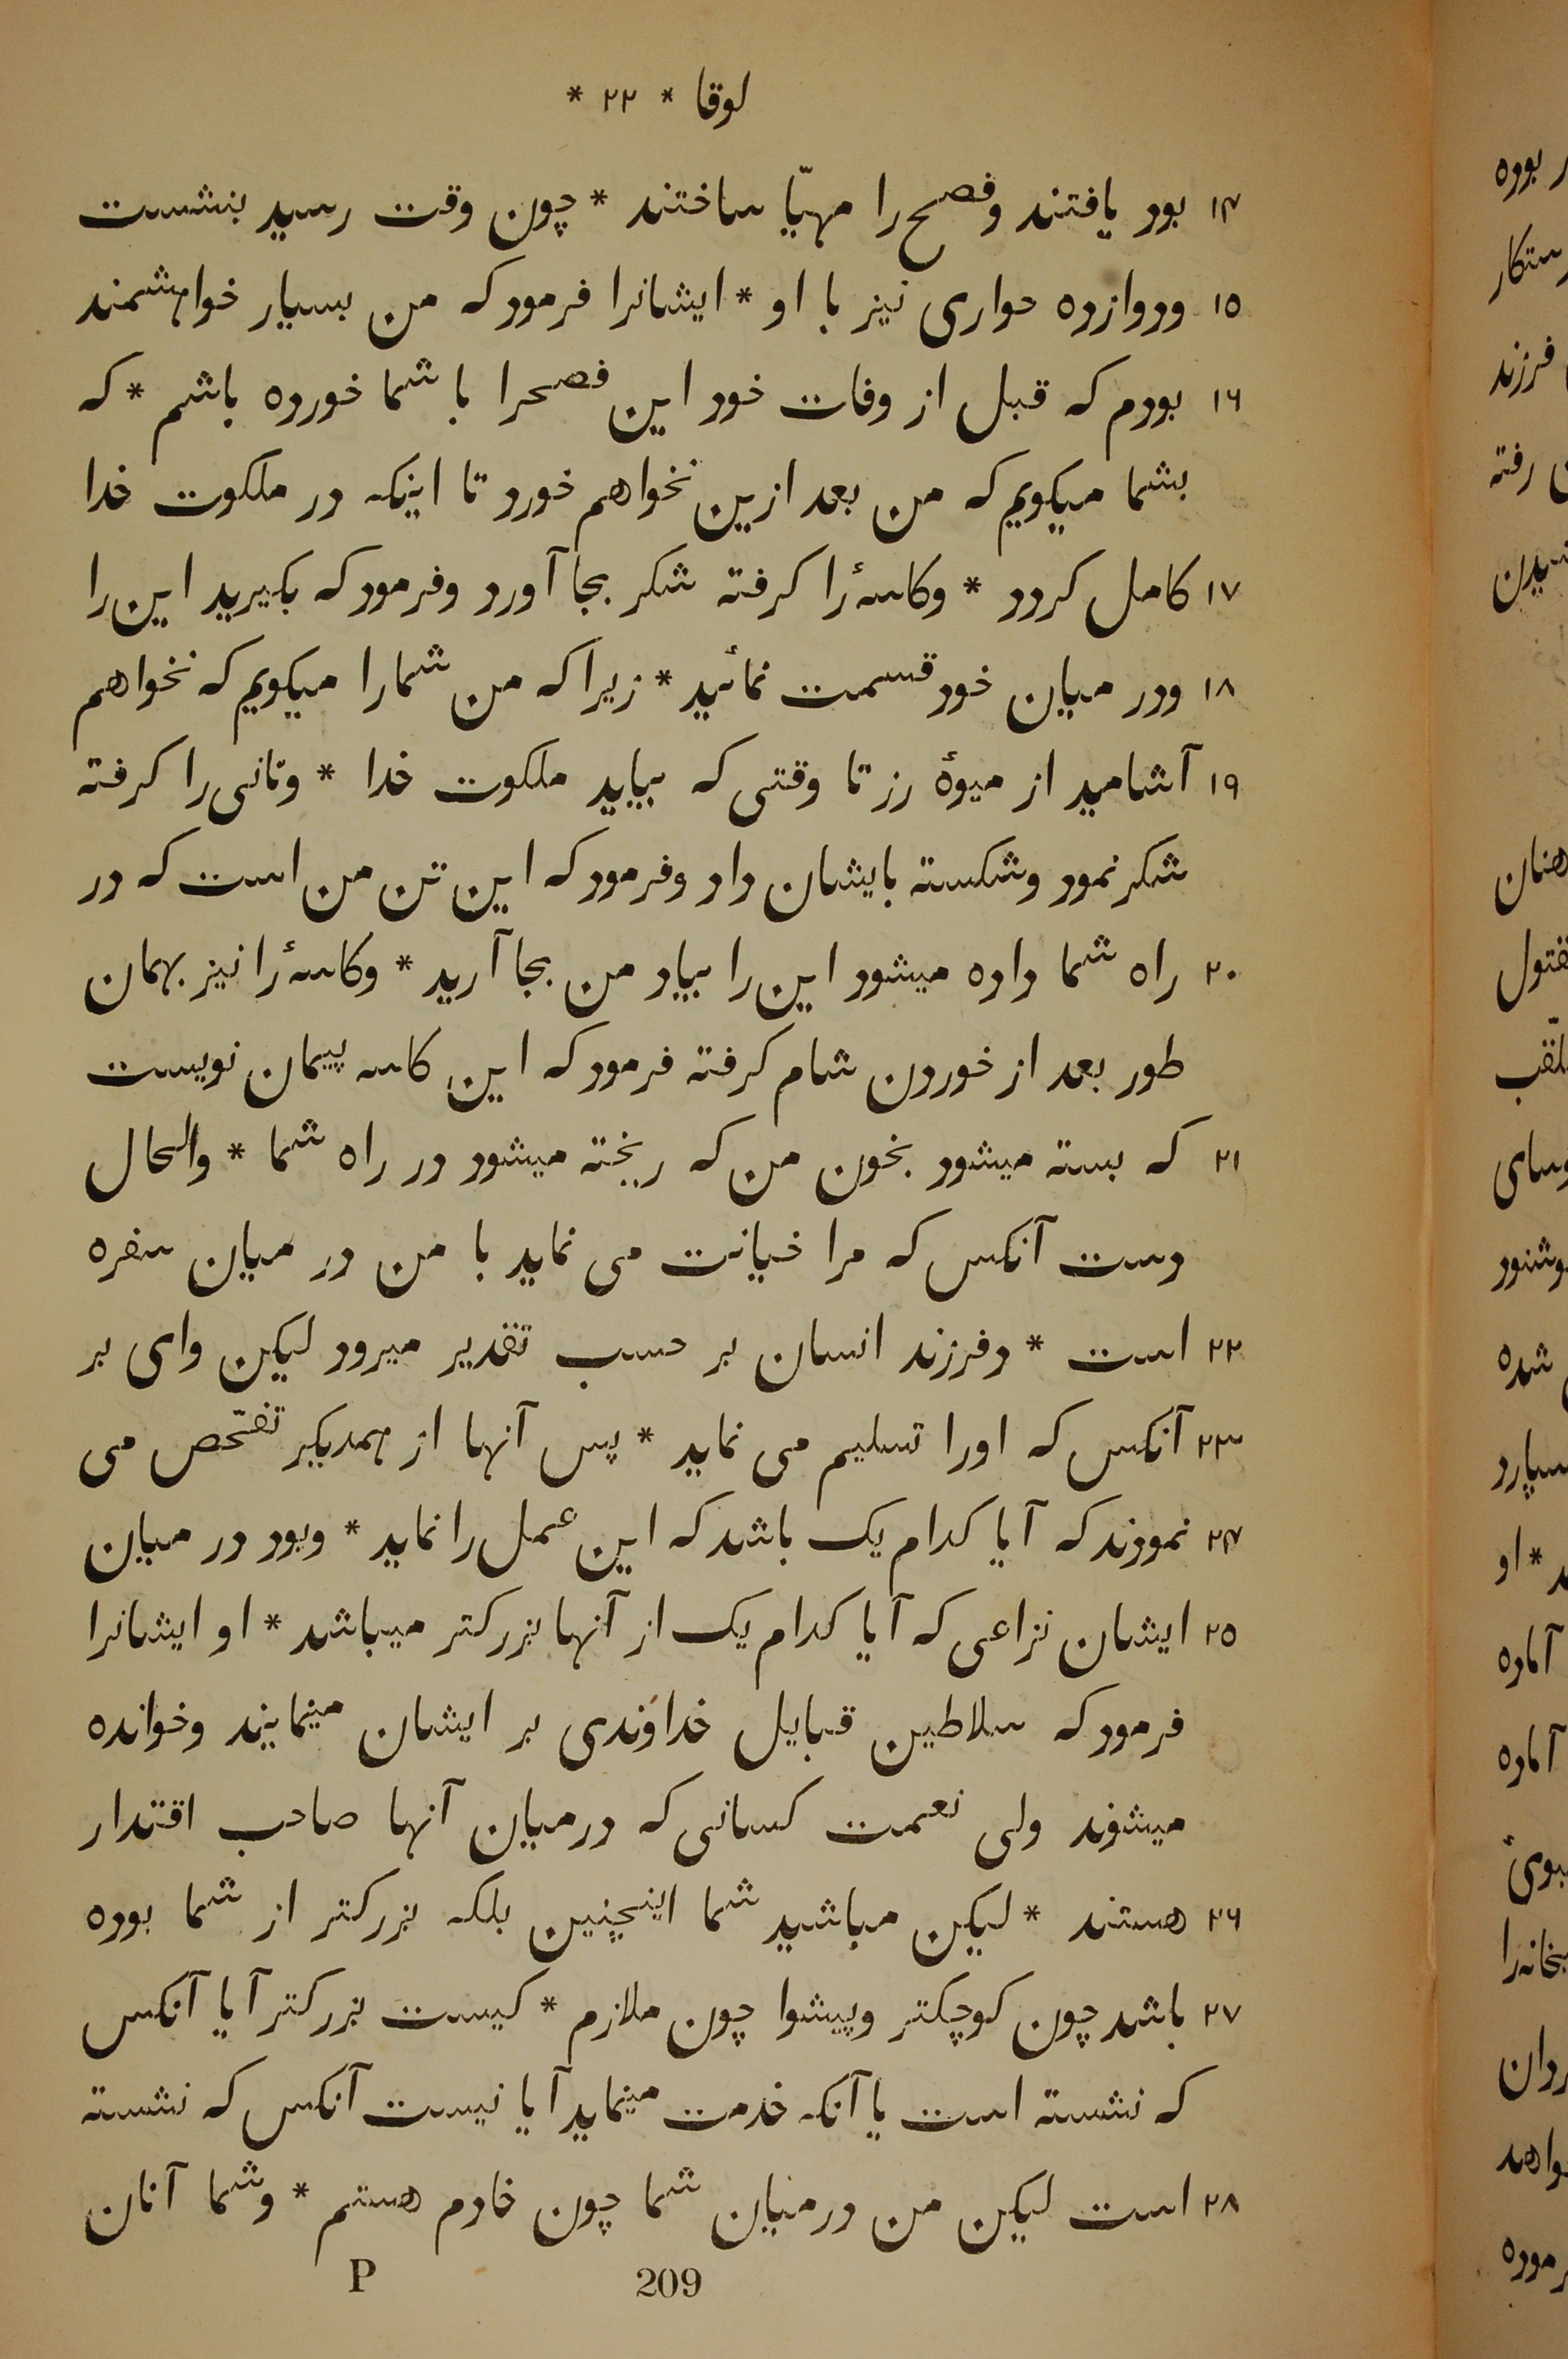 لوقا * ۲۲ *
۱۴ بود یافتند وفصح را مهیّا ساختند * چون وقت رسید بنشست
۱۵ ودوازده حواری نیز با او * ایشانرا فرمود که من بسیار خواهشمند
۱۶ بودم که قبل از وفات خود این فصحرا با شما خورده باشم * که
بشما میکویم که من بعد ازین نخواهم خورد تا اینکه در ملکوت خدا
۱۷ کامل کردد * وکاسهٔ را کرفته شکر بجا آورد وفرمود که بکیرید این را
۱۸ ودر میان خود قسمت نمائید * زیرا که من شمارا میکویم که نخواهم
۱۹ آشامید از میوهٔ رز تا وقتی که بیاید ملکوت خدا * ونانی را کرفته
شکر نمود وشکسته بایشان داد وفرمود که این تن من است که در
۲۰ راه شما داده میشود این را بیاد من بجا آرید * وکاسهٔ را نیز بهمان
طور بعد از خوردن شام کرفته فرمود که این کاسه پیمان نویست
۲۱ که بسته میشود بخون من که ریخته میشود در راه شما * والحال
دست آنکس که مرا خیانت می نماید با من در میان سفره
۲۲ است * وفرزند انسان بر حسب تقدیر میرود لیکن وای بر
۲۳ آنکس که اورا تسلیم می نماید * پس آنها از همدیکر تفحّص می
۲۴ نمودند که آیا کدام یک باشد که این عمل را نماید * وبود در میان
۲۵ ایشان نزاعی که آیا کدام یک از آنها بزرکتر میباشد * او ایشانرا
فرمود که سلاطین قبایل خداوندی بر ایشان مینمایند وخوانده
میشوند ولی نعمت کسانی که درمیان آنها صاحب اقتدار
۲۶ هستند * لیکن مباشید شما اینچنین بلکه بزرکتر از شما بوده
۲۷ باشد چون کوچکتر وپیشوا چون ملازم * کیست بزرکتر آیا آنکس
که نشسته است یا آنکه خدمت مینماید آیا نیست آنکس که نشسته
۲۸ است لیکن من درمیان شما چون خادم هستم * وشما آنان
P 209